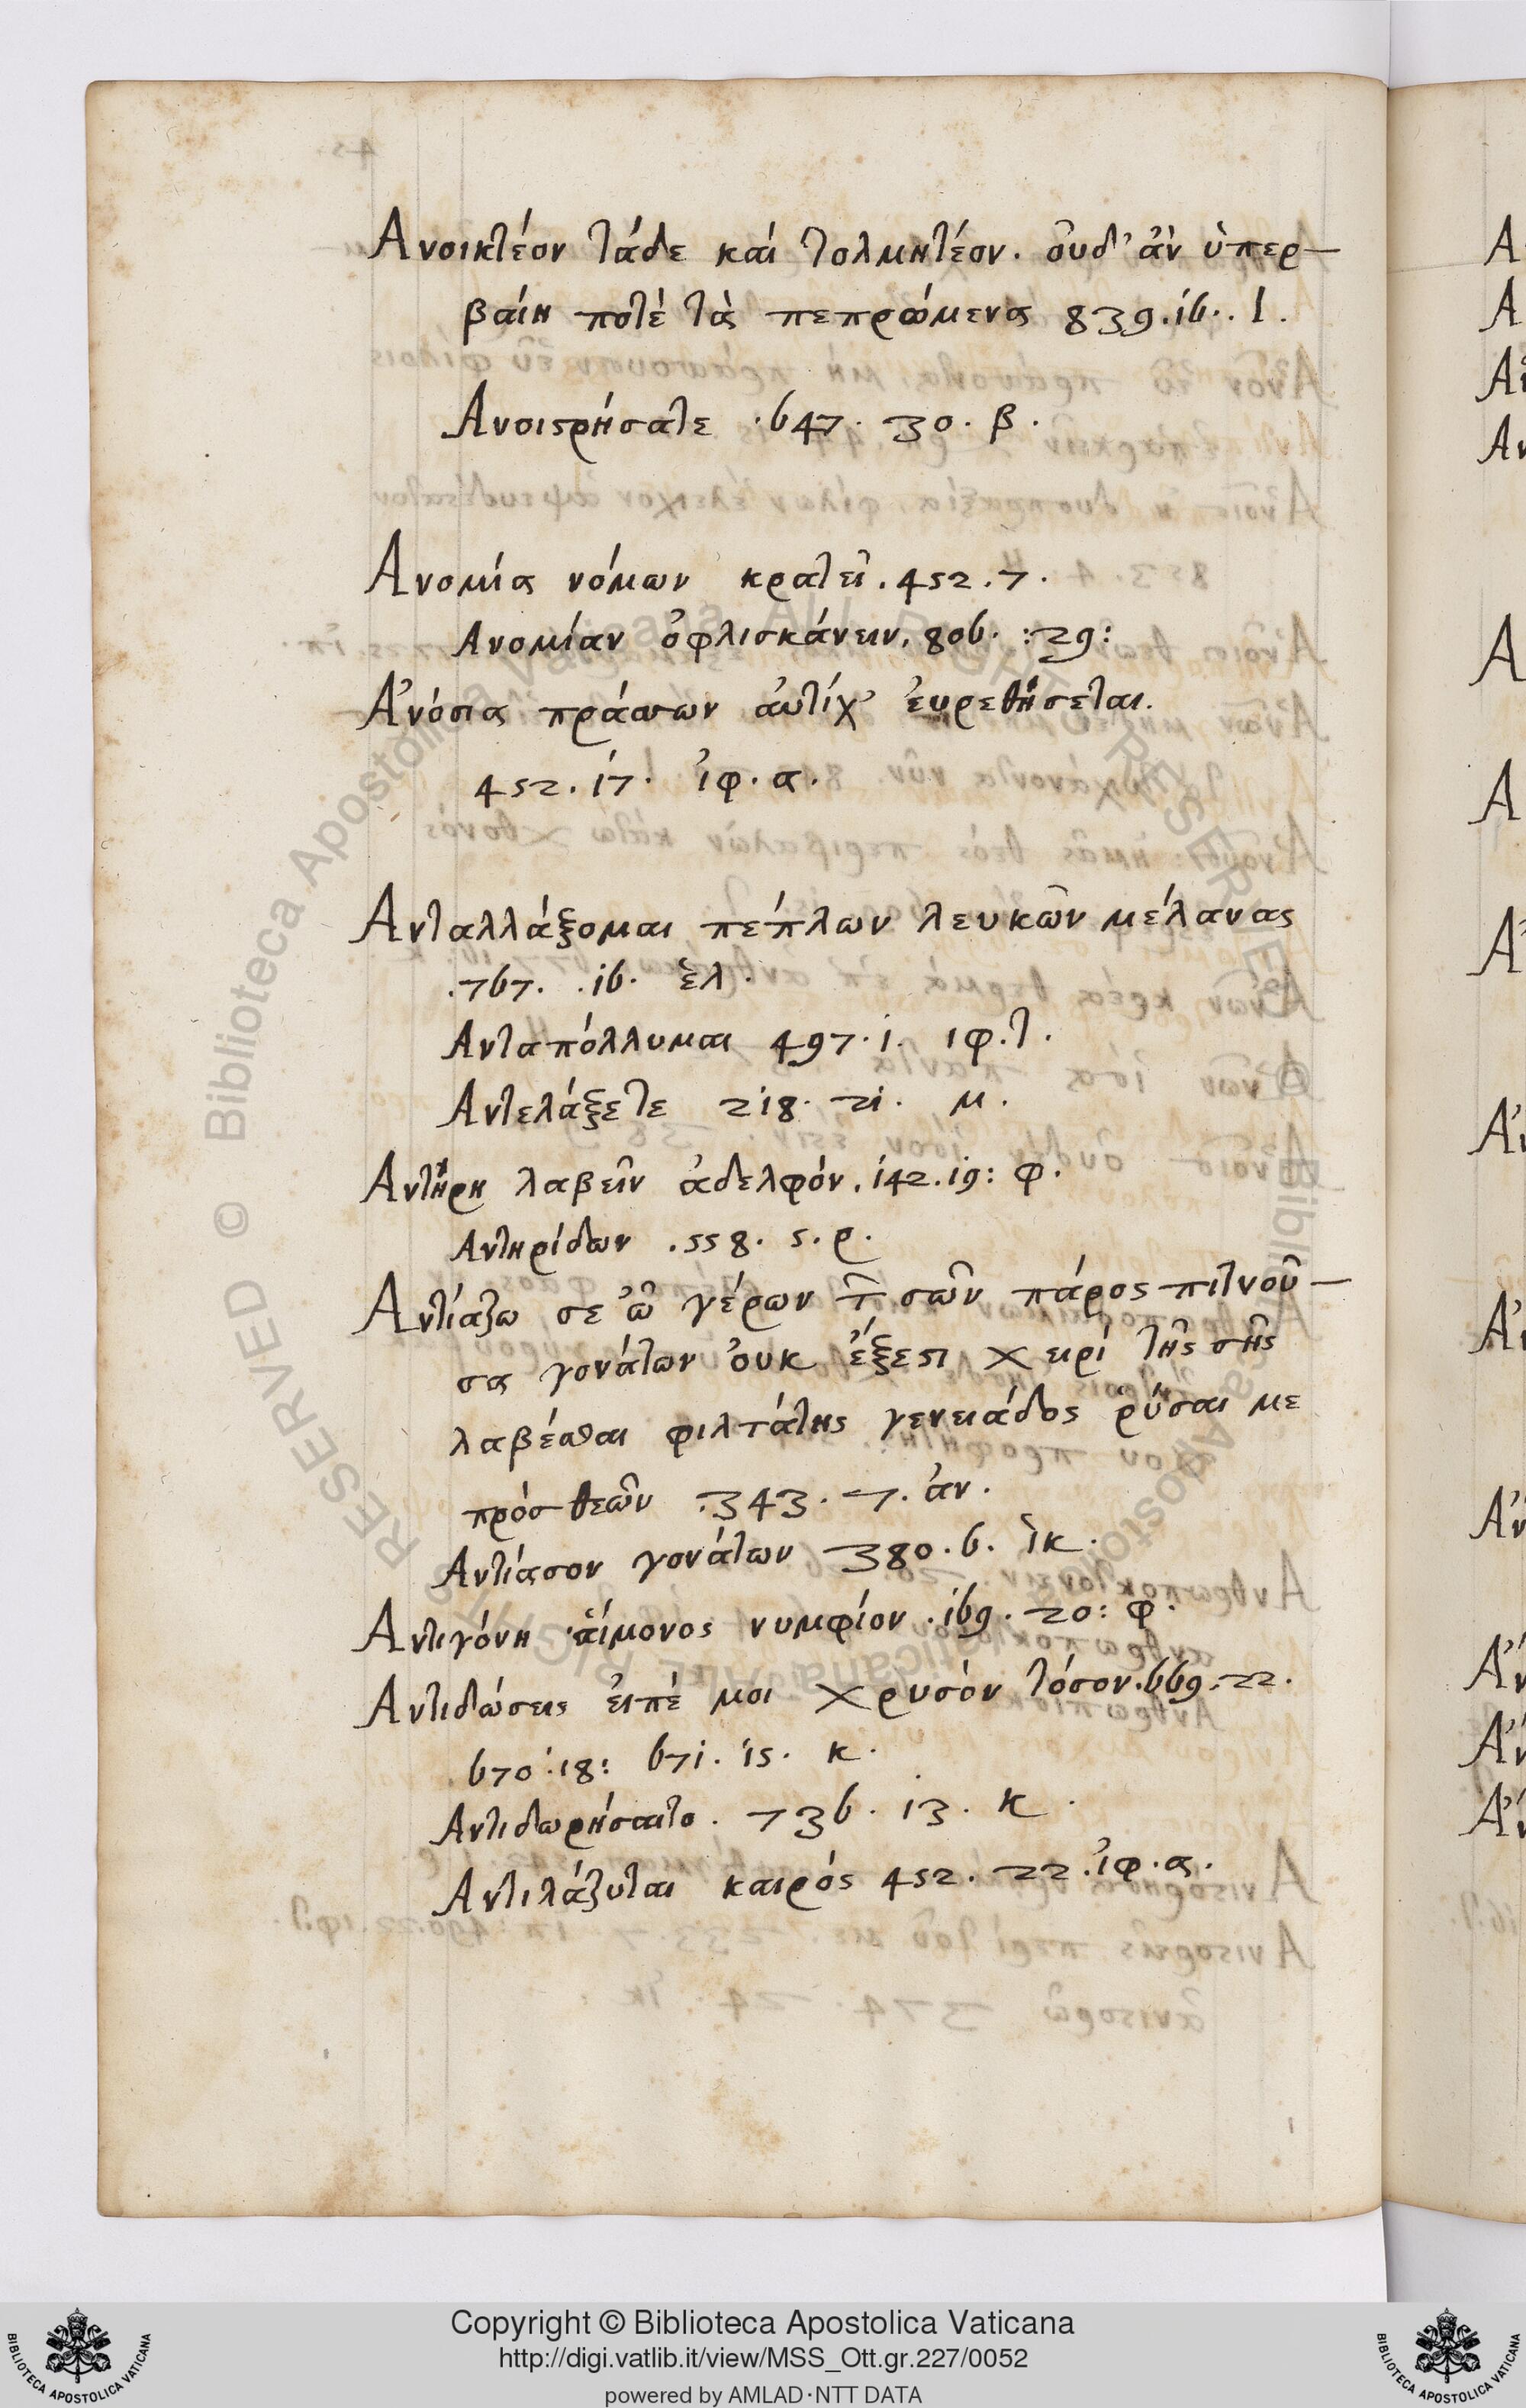 Ανοικτέον τάδε καί τολμητέον. ὀυδ' ἀν ὑπερ—
βαίη ποτέ τὰ πεπρώμενα 839.ib..τ.
Ανοιςρήσατε .647. 30. β.
Ανομία νόμων κρατεῖ. 452.7.
Ανομίαν ὀφλισκάνειν. 806. :29:
Ἀνόσια πράσσων ἀυτίχ' ἑυρεθήσεται.
452. i7. ἰφ.α.
Ανταλλάξομαι πέπλων λευκῶν μέλανας
.767. .i6. ἑλ.
Ανταπόλλυμαι 497.i. ιφ.τ.
Αντελάξετε 2i8. 2i. μ.
Αντήρη λαβεῖν ἀδελφόν. i42.i9: φ.
Αντηρίδων .558. 5.ρ.
Αντιάζω σε ὦ γέρων τ̃ σῶν πάρος πιτνοῦ—
σα γονάτων ὀυκ ἔξεςι χειρί τῆς σῆς
λαβέσθαι φιλτάτης γενειάδος ῥύσαι με
πρός θεῶν .343. 7. ἀν.
Αντίασον γονάτων 380.6. ἱκ.
Αντιγόνη ἅιμονος νυμφίον .i69. 20: φ.
Αντιδώσεις ἐιπέ μοι χρυσὸν τόσον.669.:22.
670.i8: 67i. i5. κ.
Αντιδωρήσαιτο. 736. i3. κ.
Αντιλάζυται καιρός 452. 22. ἰφ.α.
Α
Α
Copyright © Biblioteca Apostolica Vaticana
http://digi.vatlib.it/view/MSS_Ott.gr.227/0052
powered by AMLAD·NTT DATA
BIBLIOTECA APOSTOLICA VATICANA
BIBLIOTECA APOSTOLICA VATICANA